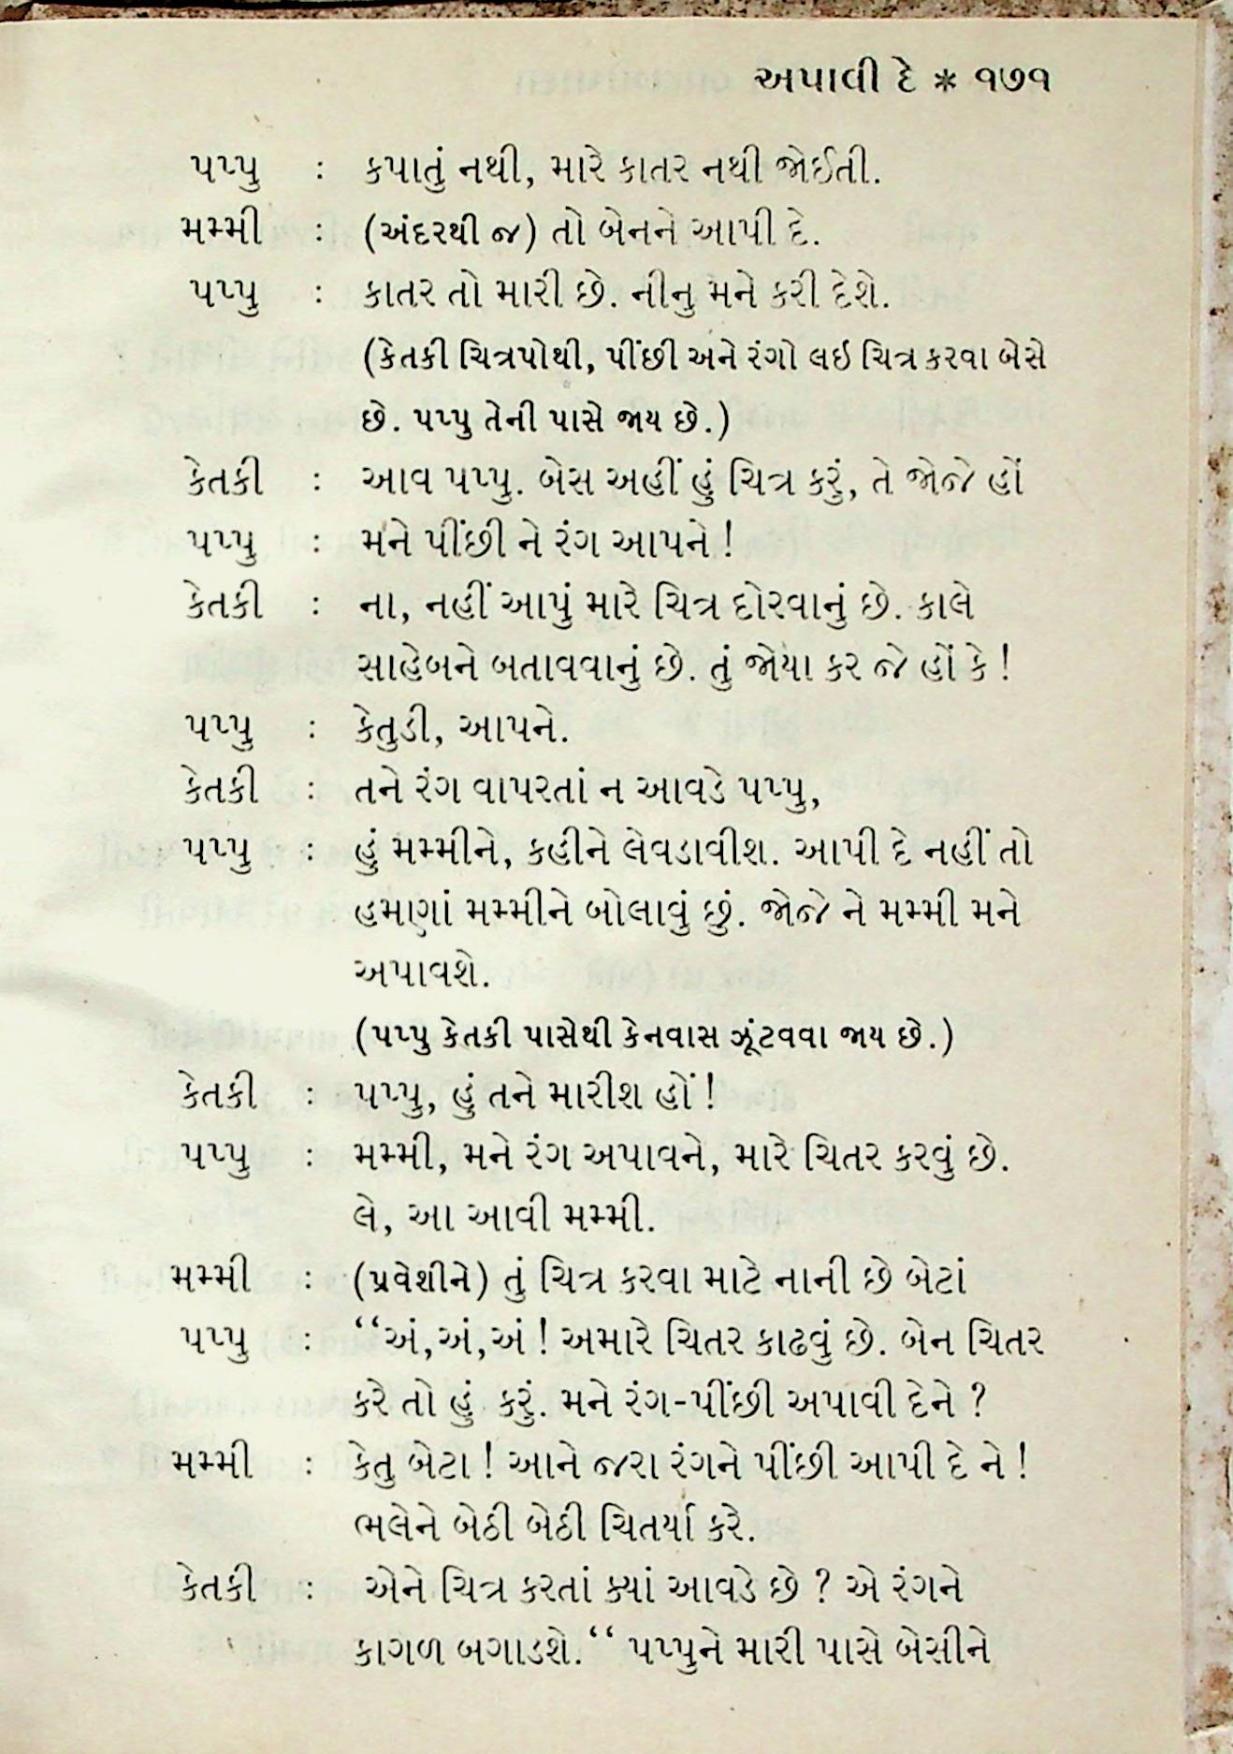 અપાવી દે * ૧૭૧
પપ્પુ : કપાતું નથી, મારે કાતર નથી જોઈતી.
મમ્મી : (અંદરથી જ) તો બેનને આપી દે.
પપ્પુ : કાતર તો મારી છે. નીનુ મને કરી દેશે.
(કેતકી ચિત્રપોથી, પીંછી અને રંગો લઇ ચિત્ર કરવા બેસે
છે. પપ્પુ તેની પાસે જાય છે.)
કેતકી : આવ પપ્પુ. બેસ અહીં હું ચિત્ર કરું, તે જોજે હોં
પપ્પુ : મને પીંછી ને રંગ આપને !
કેતકી : ના, નહીં આપું મારે ચિત્ર દોરવાનું છે. કાલે
સાહેબને બતાવવાનું છે. તું જોયા કર જે હોં કે !
પપ્પુ : કેતુડી, આપને.
કેતકી : તને રંગ વાપરતાં ન આવડે પપ્પુ,
પપ્પુ : હું મમ્મીને, કહીને લેવડાવીશ. આપી દે નહીં તો
હમણાં મમ્મીને બોલાવું છું. જોજે ને મમ્મી મને
અપાવશે.
(પપ્પુ કેતકી પાસેથી કેનવાસ ઝૂંટવવા જાય છે.)
કેતકી : પપ્પુ, હું તને મારીશ હોં !
પપ્પુ : મમ્મી, મને રંગ અપાવને, મારે ચિતર કરવું છે.
લે, આ આવી મમ્મી.
મમ્મી : (પ્રવેશીને) તું ચિત્ર કરવા માટે નાની છે બેટાં
પપ્પુ : “અં,અં,અં ! અમારે ચિતર કાઢવું છે. બેન ચિતર
કરે તો હું કરું. મને રંગ-પીંછી અપાવી દેને ?
મમ્મી : કેતુ બેટા ! આને જરા રંગને પીંછી આપી દે ને !
ભલેને બેઠી બેઠી ચિતર્યા કરે.
કેતકી : એને ચિત્ર કરતાં ક્યાં આવડે છે ? એ રંગને
કાગળ બગાડશે.“ પપ્પુને મારી પાસે બેસીને